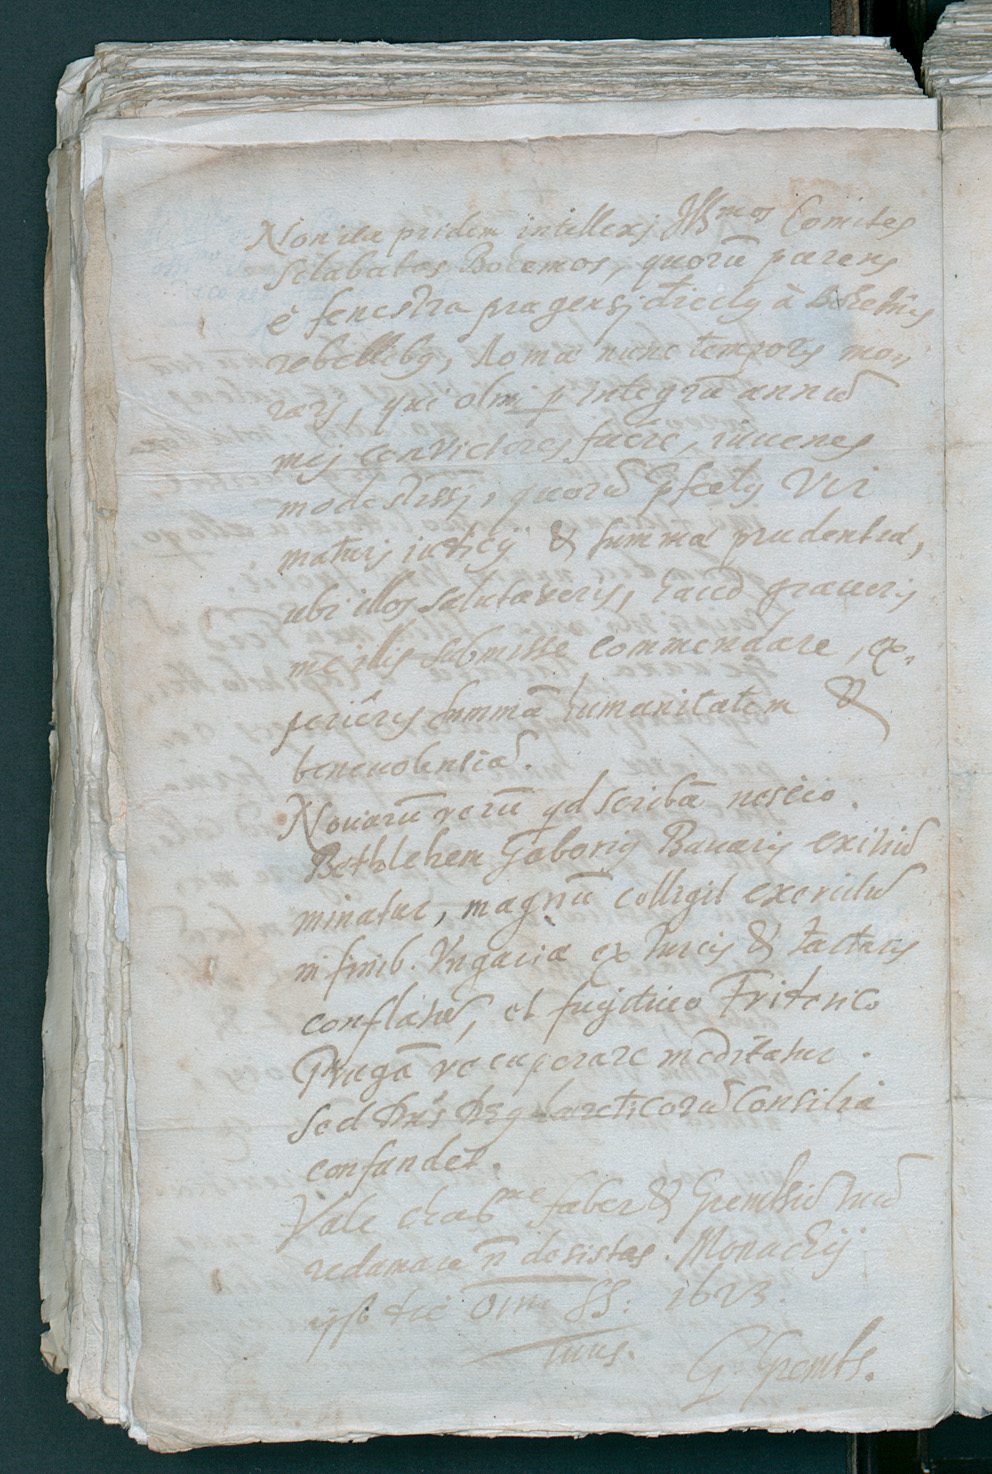 Non ita pridem intellexj Jllmos Comites
Slabatas Boëmos, quorū parens
è fenestra pragensj diectg à
rebellibg, Romæ nunc temporis mo„
rarj, qui olim p integrū annū
mej convictores fuêre, iuuenes
modestissj, quorū pfectg Vir
maturj iudicij & summæ prudentiæ,
ubi illos salutaveris, haud graueris
me illis submisse commendare, ex„
periêris summā humanitatem &
beneuolentiā.
Nouarū rerū qd scribā nescio.
Bethlehem Gaborig Bavaris exitiū
minatur, magnū colligit exercitū
in finib. Vngariæ ex Turcis & Tartaris
conflatū, et fugitiuo Friderico
Pragā recuperare meditatur.
Sed Dns Dg hæreticorū Consilia
confundet.
Vale chariss me faber & Grembsiū tuū
redamare ñ desistas. Monachij
ipso die Omn SS: 1623.
Tuus.
G. Grembs.